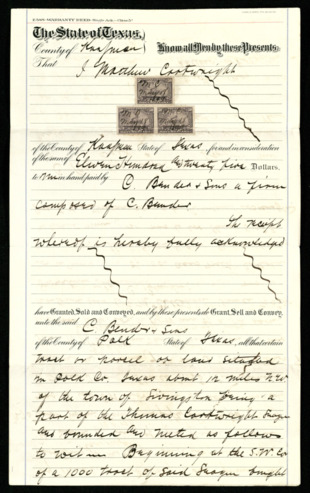 The State of Texas,
County of Kaufman
Know all Men by these Presents:
That
I Matthew Cartwright
of the County of Kaufman State of Texas, for and in consideration
of the sum of Eleven Hundred & twenty five Dollars,
to me in hand paid by
C. Bender & Sons a firm
composed of C. Bender
The receipt
whereof is hereby fully acknowledged
have Granted, Sold and Conveyed, and by these presents do Grant, Sell and Convey,
unto the said C. Bender & Sons
of the County of Polk State of Texas, all that certain
tract or parcel of land situated
in Polk Co. Texas about 12 miles N.W.
of the town of Livingston being a
part of the Thomas Cartwright league
and bounded and meted as follows
to wit Beginning at the S.W. Cor
of a 1000 tract of said league bought